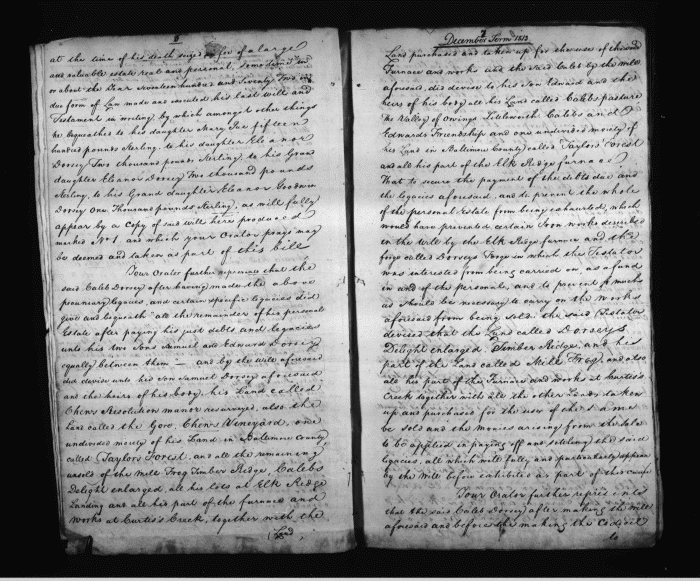 8
at the time of his death seized in fee of a large
and valuable estate real and personal, some time in
or about the Year seventeen hundred and Seventy Two in
due form of Law made and executed his last will and
Testament in writing by which amongst other things
he bequeathes to his daughter Mary Pue fifteen
hundred pounds Sterling, to his daughter Eleanor
Dorsey Two thousand pounds Sterling to his Grand
daughter Eleanor Dorsey Two thousand pounds
Sterling, to his Grand daughter Eleanor Goodwin
Dorsey One Thousand pounds Sterling, as will fully
appear by a Copy of said will here produced
marked No 1, and which your Orator prays may
be deemed and taken as part of this bill
Your Orator further represents that the
said Caleb Dorsey after having made the above
pecuniary legacies, and certain specific legacies did
give and bequeath "all the remainder of his personal
Estate after paying his just debts, and legacies
unto his two Sons Samuel and Edward Dorsey
equally between them — and by the will aforesaid
did devise unto his Son Samuel Dorsey aforesaid
and the heirs of his body, his Land called
Chews Resolution manor resurveyed, also the
Land called the Gore, Chews Vineyard, one
undivided moiety of his Land in Baltimore County
called Taylors Forest, and all the remaining
unsold of the Milk Frog Timber Ridge, Calebs
Delight enlarged, all his lots at Elk Ridge
Landing and all his part of the furnace and
Works at Curtis's Creek, together with the
Land
December Term 1813
Land purchased and taken up for the use of the said
Furnace and works and the said Caleb by the will
aforesaid did devise to his Son Edward and the
heirs of his body all his Land called Calebs pasture
the Valley of Owings Littleworth Calebs and
Edwards Friendship and one undivided moiety of
his Land in Baltimore County called Taylors Forest
and all his part of the Elk Ridge furnace
That to secure the payment of the debts due and
the legacies aforesaid, and to prevent the whole
of the personal Estate from being exhausted, which
would have prevented certain Iron works described
in the will by the Elk Ridge furnace and the
forge called Dorseys Forge in which the Testator
was interested from being carried on, as a fund
in aid of the personal, and to prevent so much
as should be necessary to carry on the Works
aforesaid from being sold; the said Testator
devised that the Land called Dorseys
Delight enlarged Timber Ridge, and his
part of the Land called Milk Frog, and also
all his part of the Furnace and works at Curtis's
Creek together with all the other Lands taken
up and purchased for the use of the same
be sold and the monies arising from the sale
to be applied in paying off and settling the said
legacies, all which will fully and particularly appear
by the Will before exhibited as part of this cause
Your Orator further represents
that the said Caleb Dorsey after making the will
aforesaid and before the making the Codicil
to